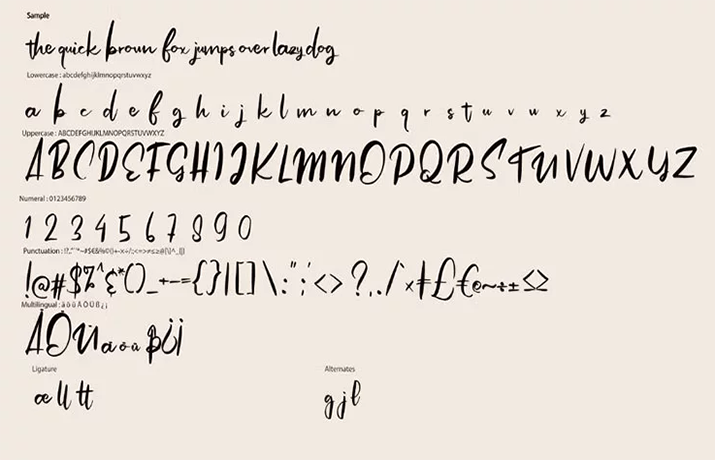 Sample
the quick broun fox jumps over lazy dog
Lowercase : abcdefghijklmnopqrstuvwxyz
a b c d e f g h i j k l m n o p q r s t u v w x y z
Uppercase : ABCDEFGHIJKLMNOPQRSTUVWXYZ
A B C D E F G H I J K L M N O P Q R S T U V W X Y Z
Numeral : 0123456789
1 2 3 4 5 6 7 8 9 0
Punctuation :
!@#$%^&*()_+-={}|[]\:";'<>?,./
Multilingual : ä ö ü Ä Ö Ü ß ¿ ¡
Ä Ö Ü ä ö ü ß ¿ ¡
Ligature Alternates
æ ll tt g j l